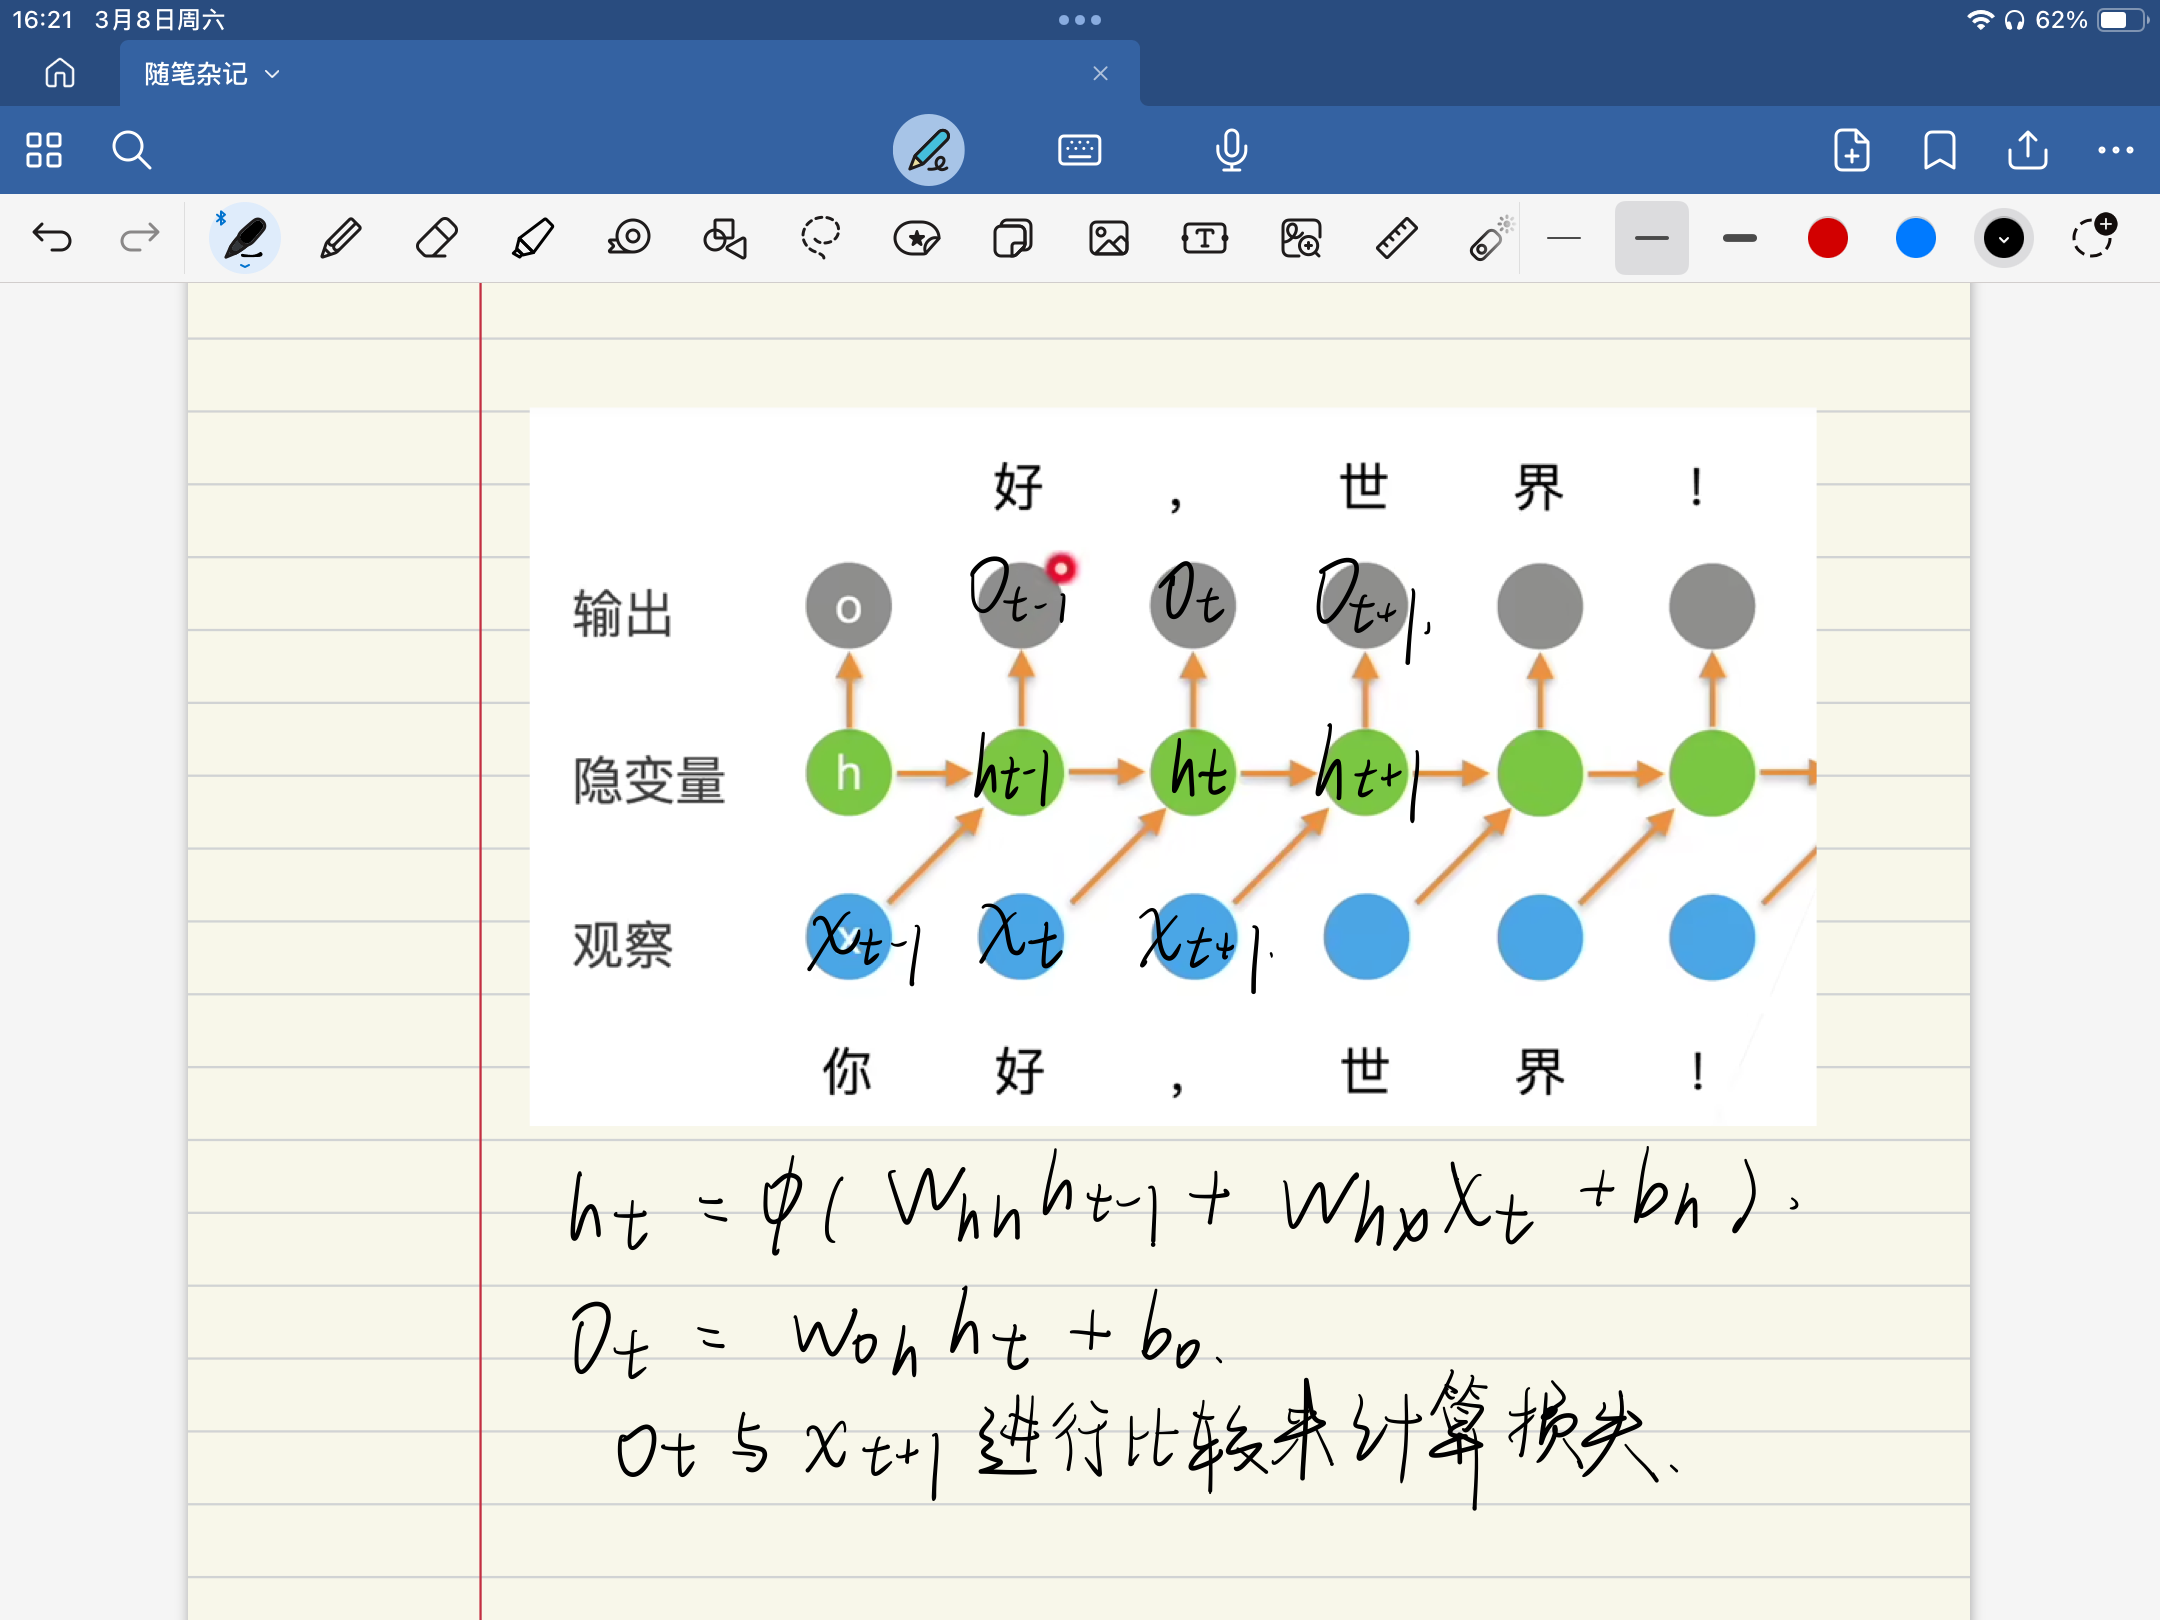 16:21 3月8日周六 62%
随笔杂记
好 , 世 界 !
输出 o O_{t-1} O_t O_{t+1}.
隐变量 h h_{t-1} h_t h_{t+1}
观察 x_{t-1} x_t x_{t+1}.
你 好 , 世 界 !
h_t = φ( W_{hh} h_{t-1} + W_{hx} x_t + b_h ).
O_t = W_{oh} h_t + b_o.
O_t 与 x_{t+1} 进行比较来计算损失.